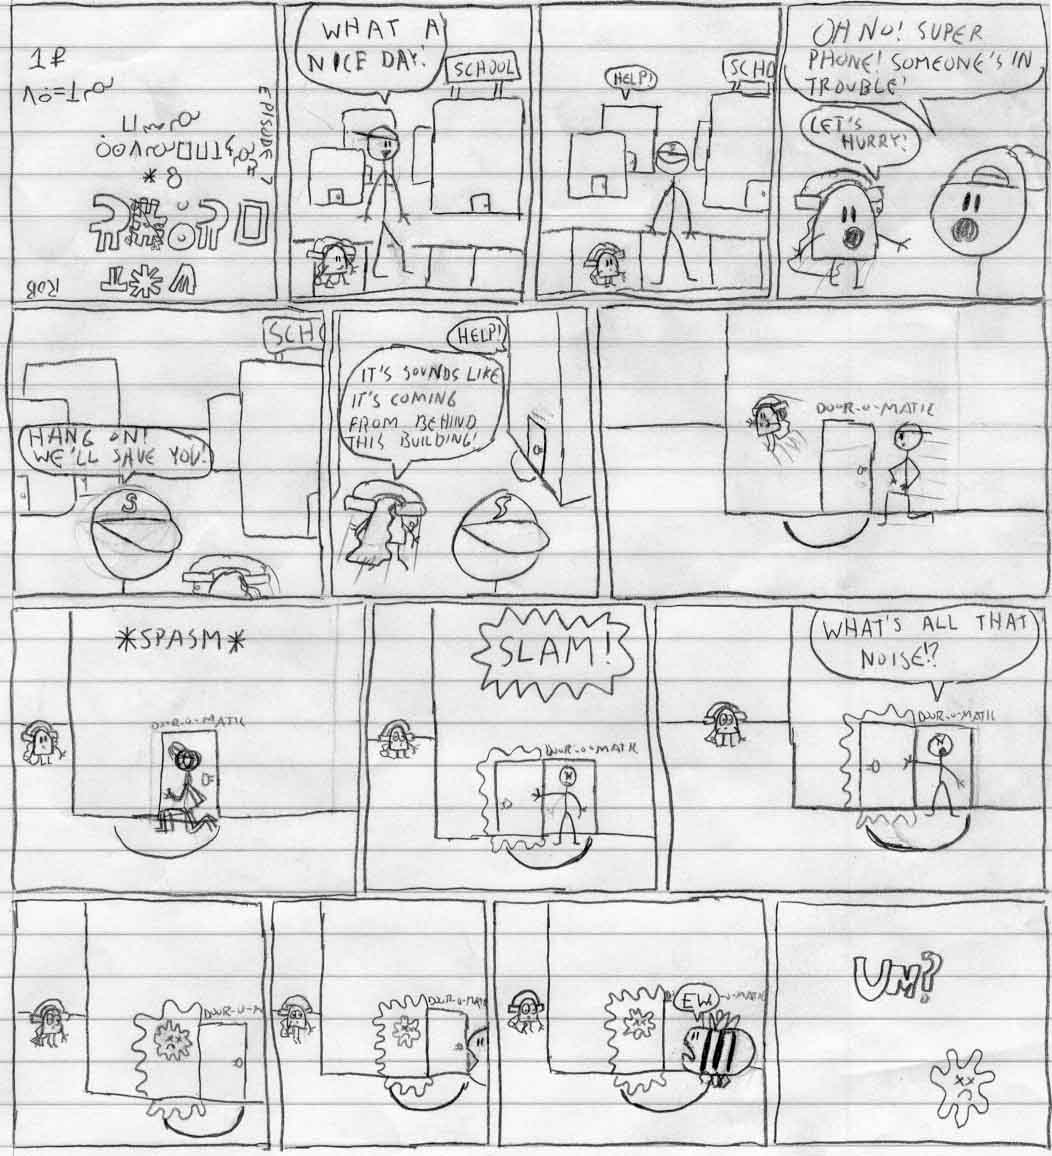 EPISODE 7
ROB
WHAT A
NICE DAY!
SCHOOL
HELP!
SCHO
OH NO! SUPER
PHONE! SOMEONE'S IN
TROUBLE!
LET'S
HURRY!
SCHO
HANG ON!
WE'LL SAVE YOU!
S
HELP!
IT'S SOUNDS LIKE
IT'S COMING
FROM BEHIND
THIS BUILDING!
S
DOOR-O-MATIC
*SPASM*
DOOR-O-MATIC
SLAM!
DOOR-O-MATIC
WHAT'S ALL THAT
NOISE!?
DOOR-O-MATIC
DOOR-O-M
DOOR-O-MAT
EW.
-O-MATIC
UM?